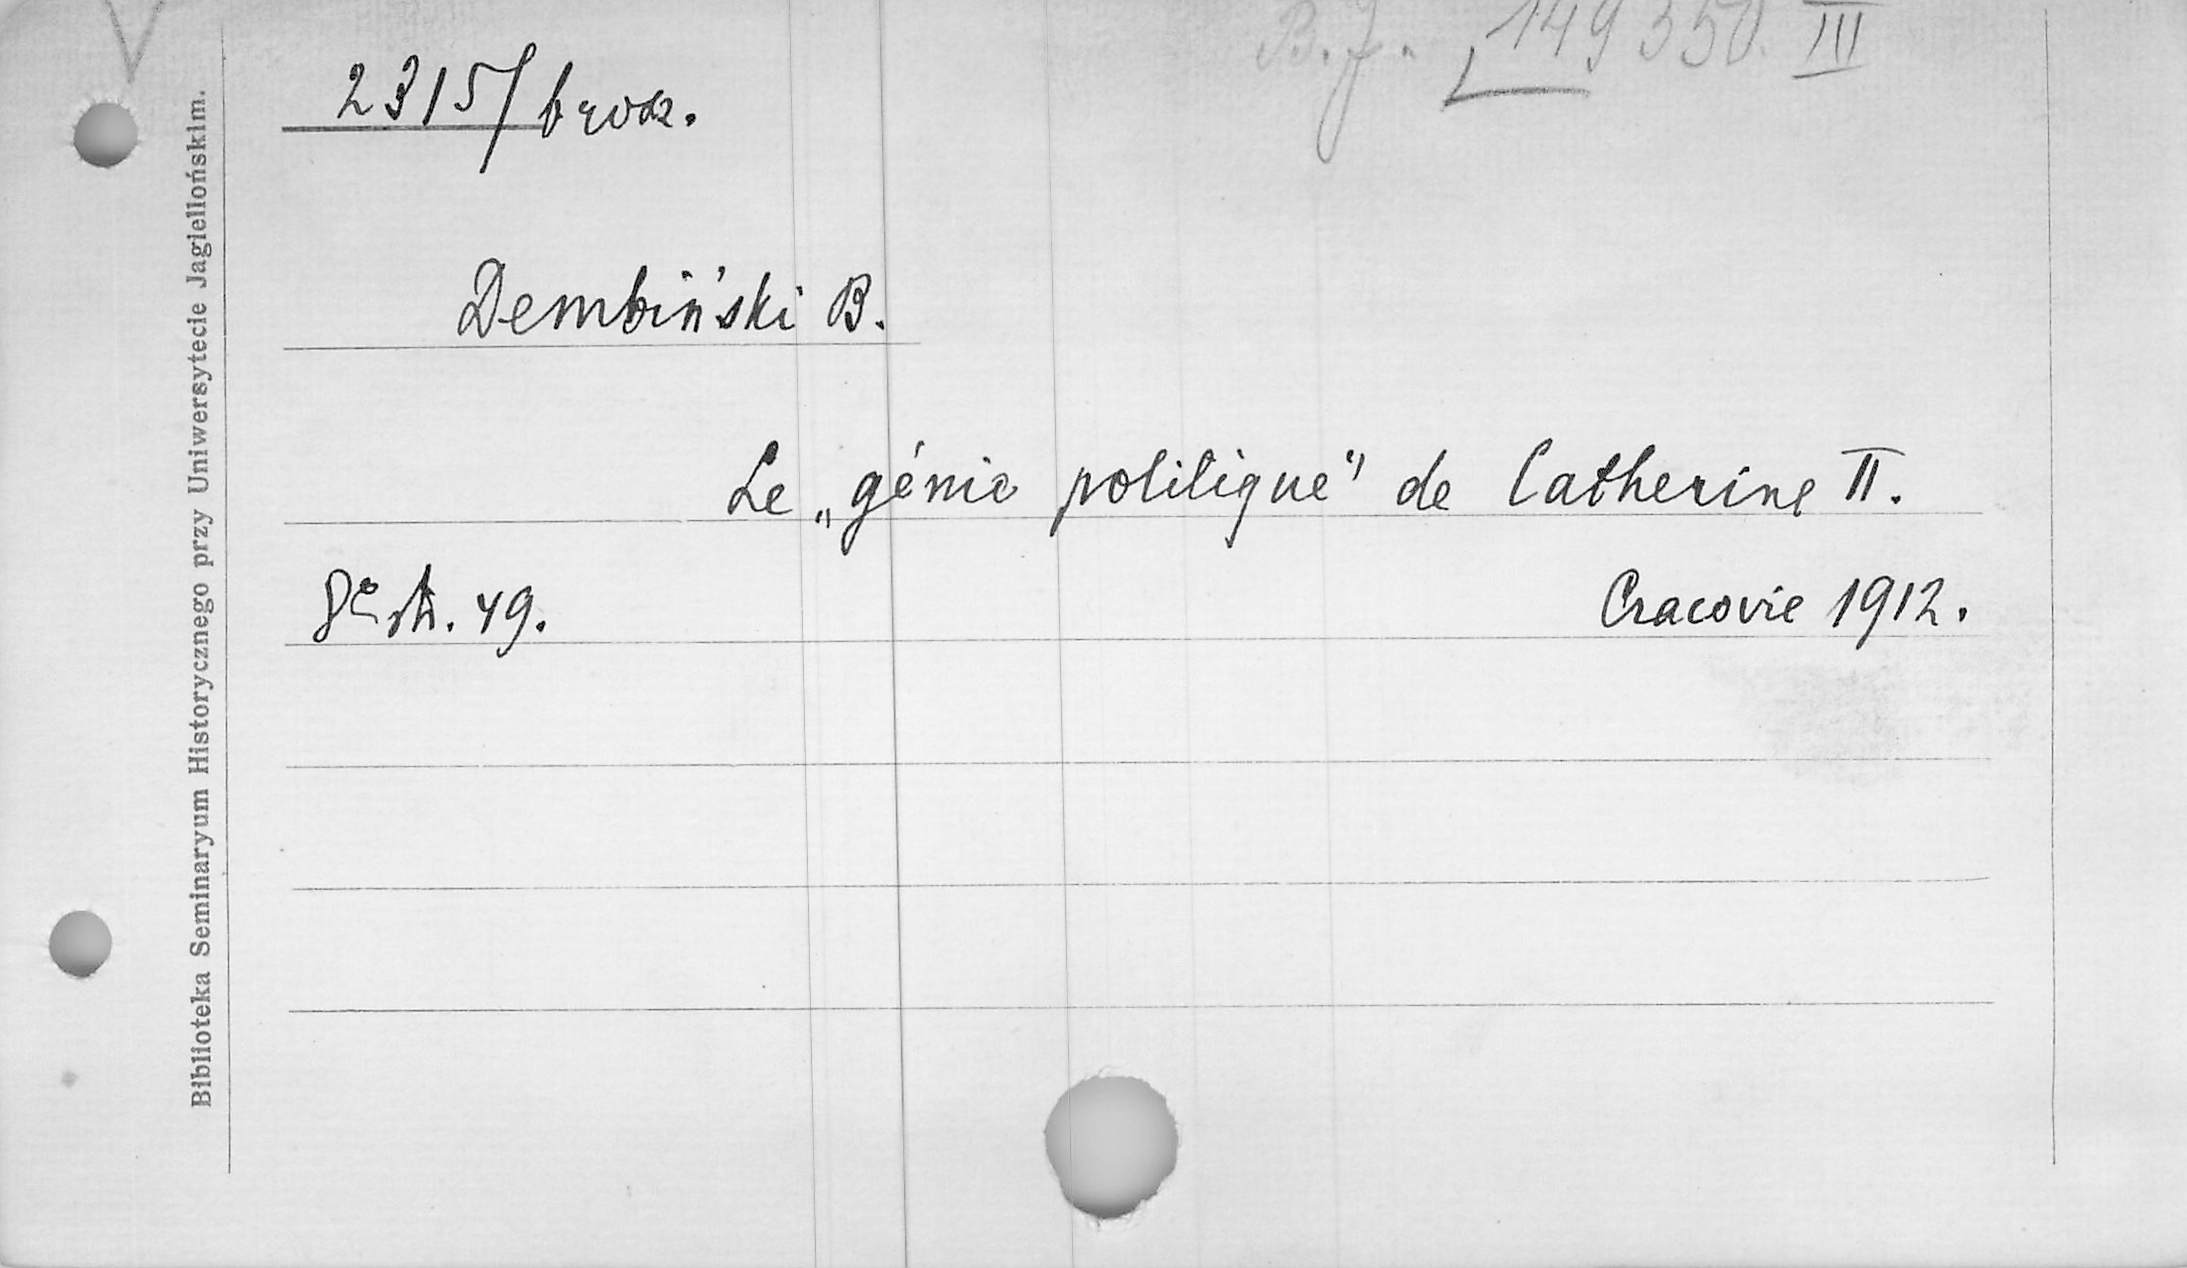 B. J. 149350. III
2315/brosz.
Dembiński B.
Le „génie politique" de Catherine II.
8° str. 49.
Cracovie 1912.
Biblioteka Seminaryum Historycznego przy Uniwersytecie Jagiellońskim.